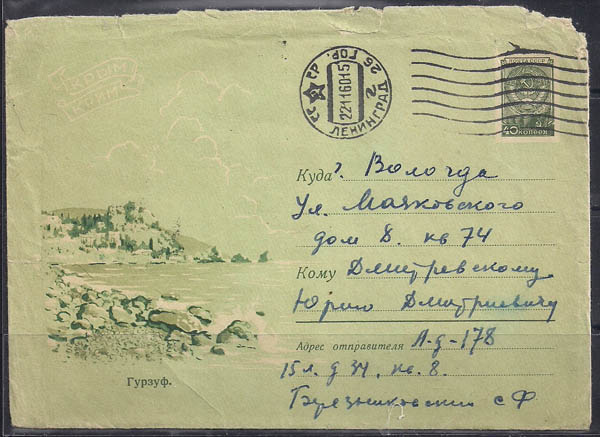 ПОЧТА СССР
40 КОПЕЕК
СССР
22116015
26 ГОР.
2
ЛЕНИНГРАД
Куда г. Вологда
Ул. Маяковского
дом 8. кв 74
Кому Дмитревскому
Юрию Дмитриевичу
Адрес отправителя Л-д-178
15 л. д 34, кв. 8.
Березниковский с Ф
Гурзуф.